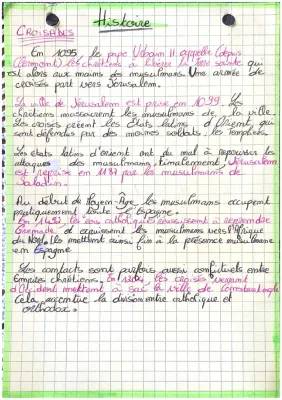 Histoire
CROISADES
En 1095, le pape Urbain II appelle (depuis
Clermont) les chrétiens à libérer la terre sainte qui
est alors aux mains des musulmans. Une armée de
croisés part vers Jérusalem.
La ville de Jérusalem est prise en 1099. Les
chrétiens massacrent les musulmans de la ville.
Les croisés créent les États latins d'Orient, qui
sont défendus par des moines soldats, les Templiers.
Les états latins d'orient ont du mal à repousser les
attaques musulmans, finalement, Jérusalem
est reprise en 1187 par les musulmans de
Saladin.
Au début du Moyen-Âge, les musulmans occupent
pratiquement toute l'Espagne.
En 1492, les rois catholiques réussissent à reprendre
Grenade et repoussent les musulmans vers l'Afrique
du Nord. Ils mettent ainsi fin à la présence musulmane
en Espagne
Les contacts sont parfois aussi conflictuels entre
Empires chrétiens. En 1204, les croisés venant
d'Occident mettent à sac la ville de Constantinople
Cela accentue la division entre catholique et
orthodoxe.